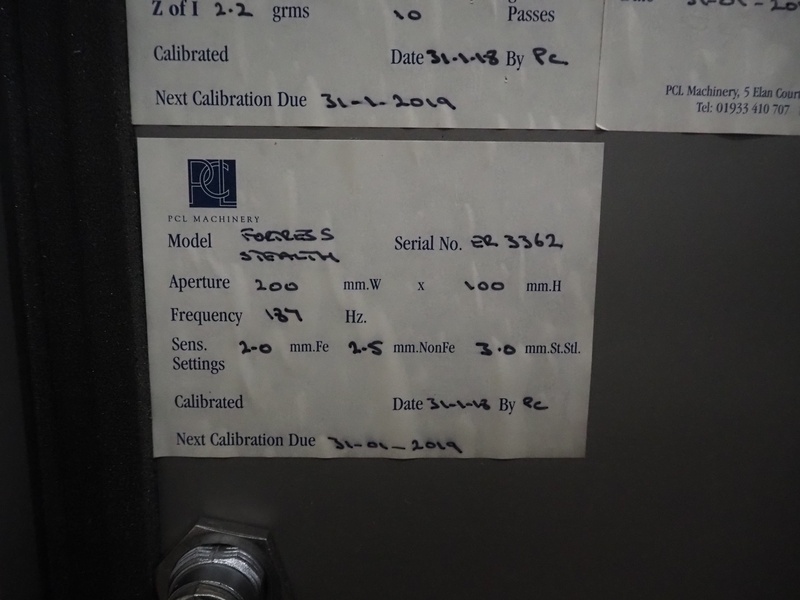 Z of I 2.2 grms 10 Passes
Calibrated Date 31-1-18 By PC
Next Calibration Due 31-1-2019
PCL Machinery, 5 Elan Cour
Tel: 01933 410 707
PCL
PCL MACHINERY
Model FORTRESS STEALTH Serial No. ER 3362
Aperture 200 mm.W x 100 mm.H
Frequency 187 Hz.
Sens. Settings 2.0 mm.Fe 2.5 mm.NonFe 3.0 mm.St.Stl.
Calibrated Date 31-1-18 By PC
Next Calibration Due 31-01-2019